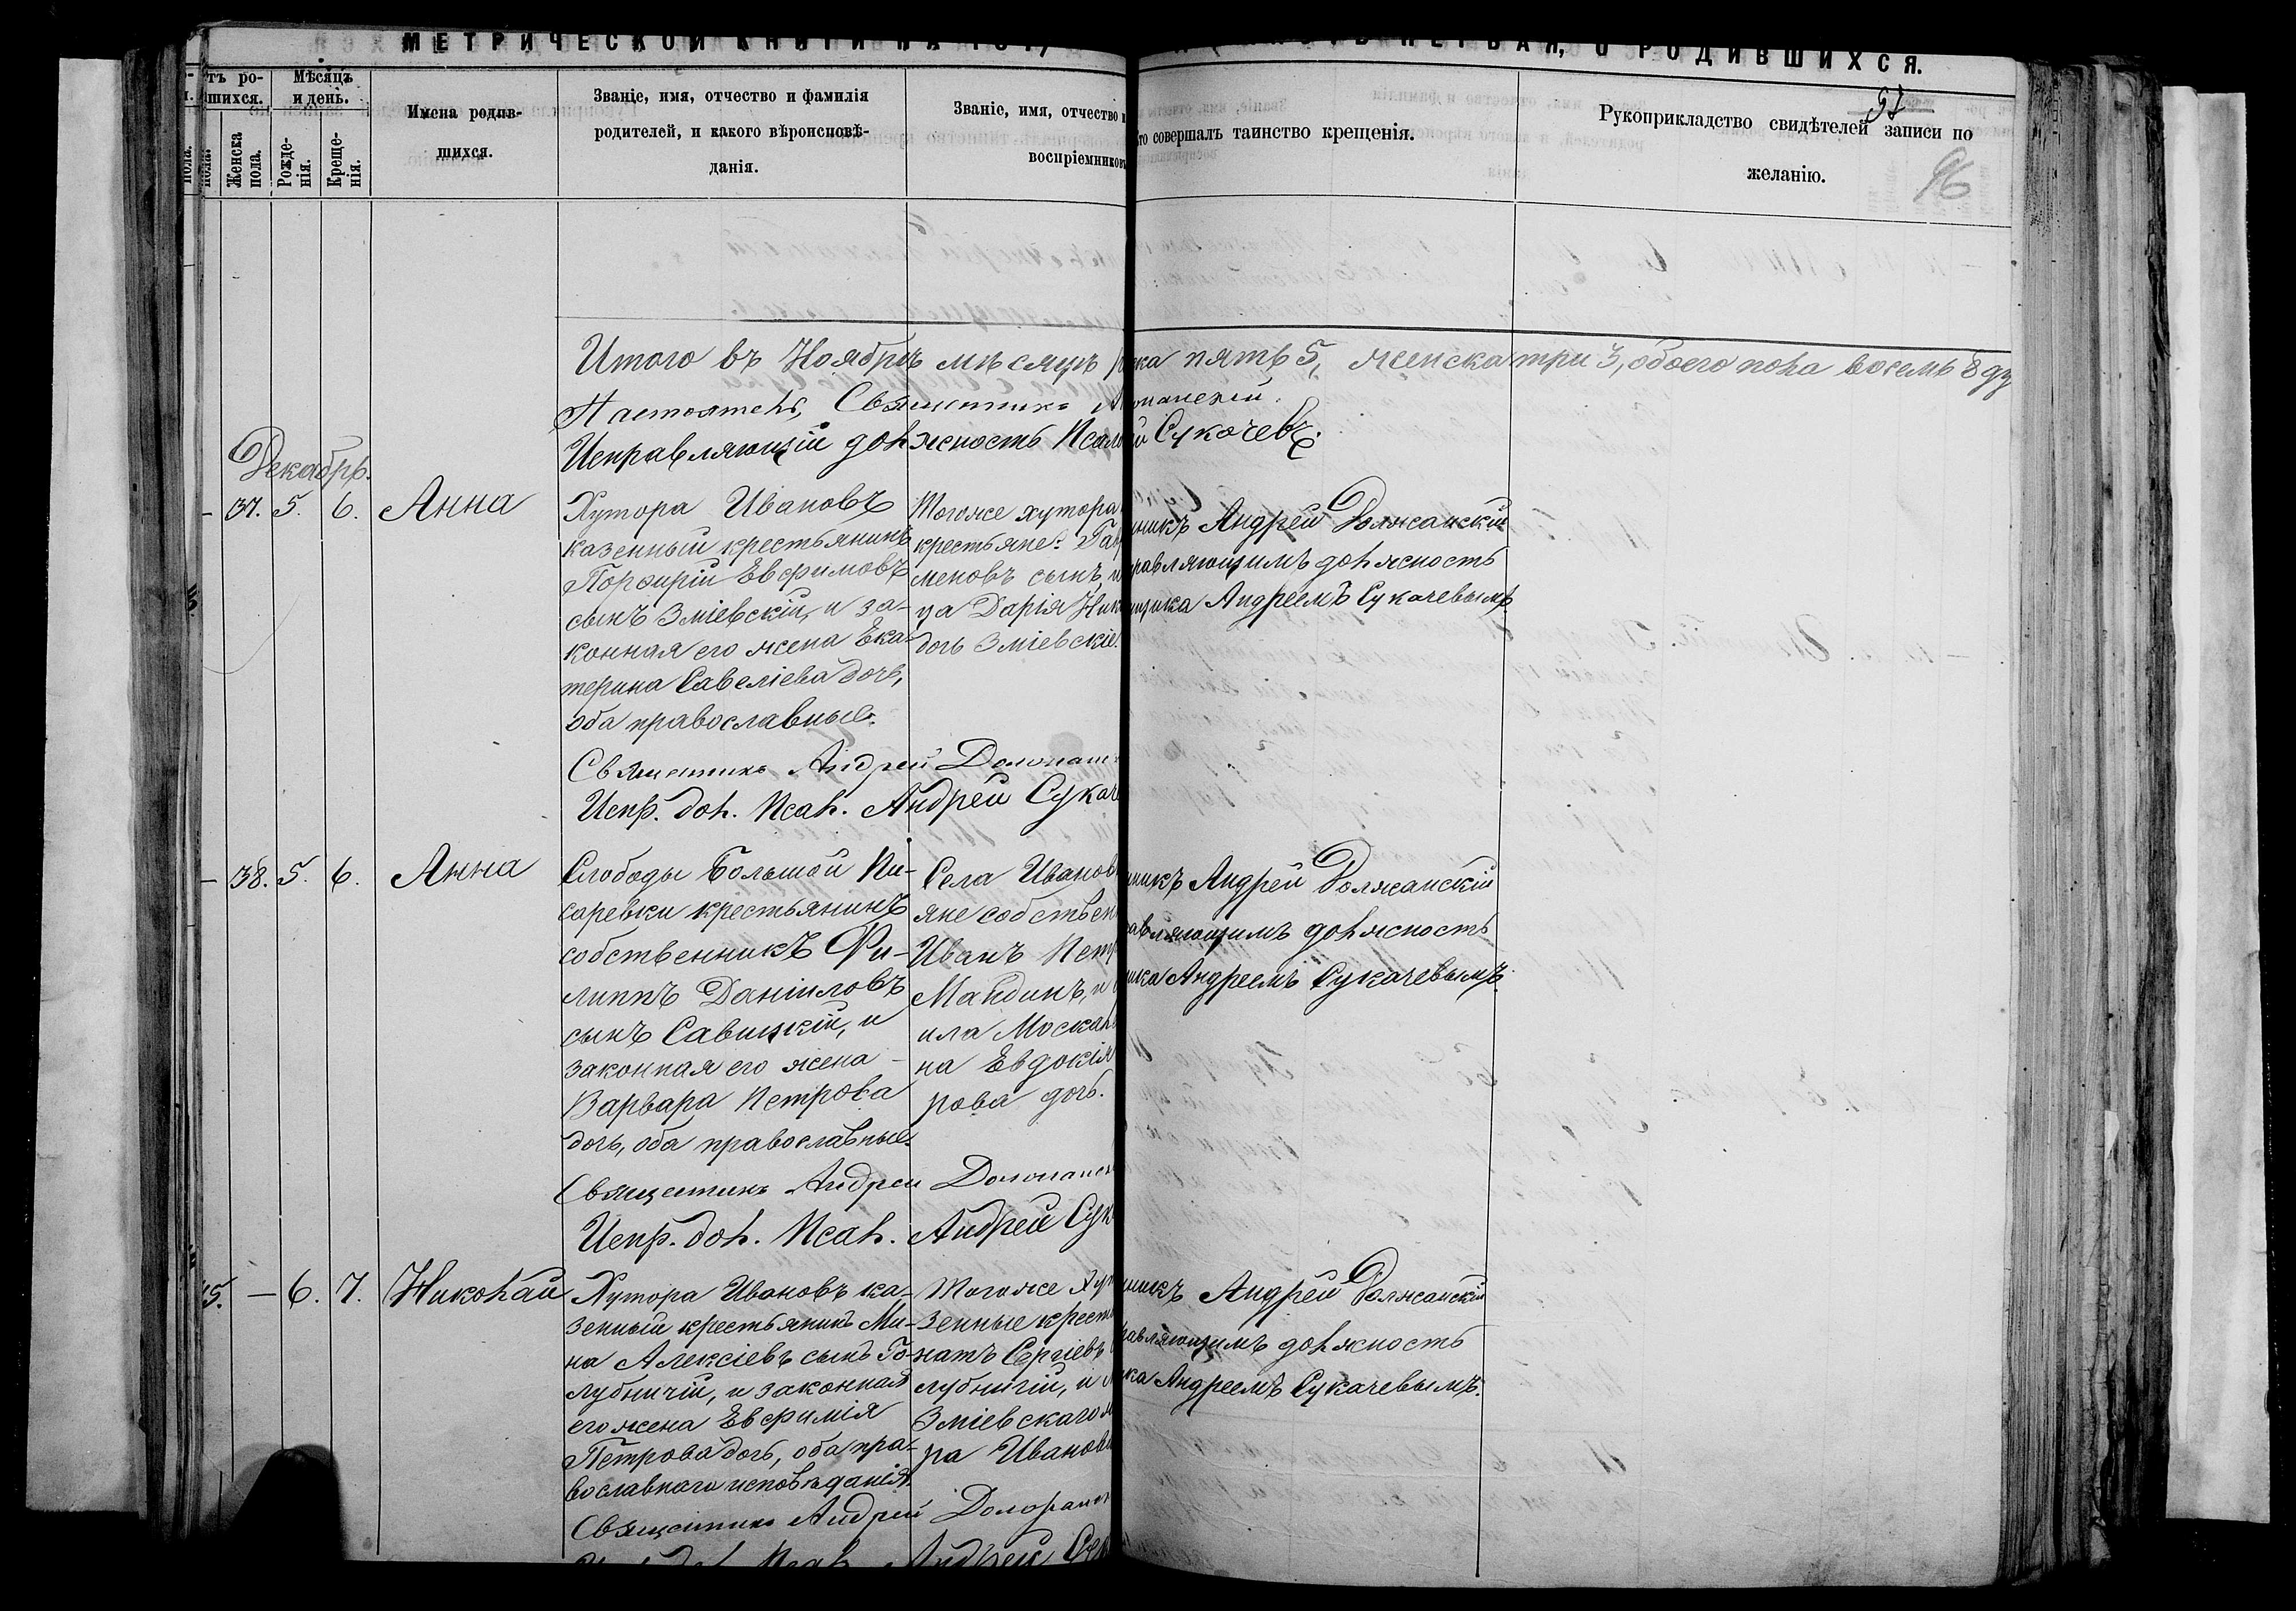 МЕТРИЧЕСКОЙ КНИГИ НА 187
ПЕРВАЯ, О РОДИВШИХСЯ.
тъ ро-
шихся.
Мѣсяцъ
и день.
Женска
пола.
Рожде-
нія.
Креще-
нія.
Имена родив-
шихся.
Званіе, имя, отчество и фамилія
родителей, и какого вѣроисповѣ-
данія.
Званіе, имя, отчество и
воспріемниковъ
то совершалъ таинство крещенія.
Рукоприкладство свидѣтелей записи по
желанію.
96
Итого въ Ноябрѣ мѣсяцѣ
ска пять 5, женска три 3, обоего пола восемь 8 ду
Настоятель, Священникъ
Исправляющій должность Псал
Сукачевъ.
Декабрь.
37. 5. 6. Анна
Хутора Ивановъ
казенный крестьянинъ
Порфирій Евфимовъ
сынъ Зміевскій, и за-
конная его жена Ека-
терина Савеліева дочь,
оба православные.
Тогоже хутора
крестьяне: Гав
меновъ сынъ, и
ца Дарія Ник
дочь Зміевскіе.
никъ Андрей Должанскій
равляющимъ должность
щика Андреемъ Сукачевымъ.
Священникъ Андрей
Испр. дол. Псал. Андрей Сукаче
38. 5. 6. Анна
Слободы Большой Пи-
саревки крестьянинъ
собственникъ Фи-
липпъ Даніиловъ
сынъ Савицкій, и
законная его жена
Варвара Петрова
дочь, оба православные.
Села Иванов
яне собствен
Иванъ Петр
Майдинъ, и
ила Москал
на Евдокія
рова дочь.
никъ Андрей Должанскій
авляющимъ должность
ика Андреемъ Сукачевымъ.
Священникъ Андрей
Испр. дол. Псал. Андрей Сук
45. — 6. 7. Николай
Хутора Ивановъ ка-
зенный крестьянинъ Ми-
на Алексіевъ сынъ Го-
лубничій, и законная
его жена Евфимія
Петрова дочь, оба пра-
вославнаго исповѣданія.
Тогоже Хут
зенные крест
натъ Сергіевъ
лубничій, и
Зміевскаго ж
ра Иванова
никъ Андрей Должанскій
равляющимъ должность
ка Андреемъ Сукачевымъ.
Священникъ Андрей